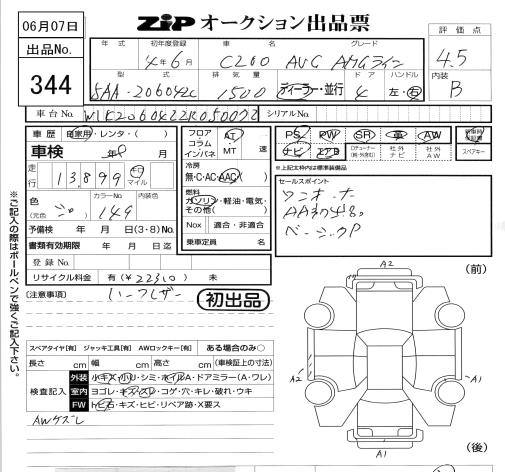 06月07日
ZiP オークション出品票
出品No.
344
年式 初年度登録 車名 グレード
4年6月 C200 AVG AMGライン
型式 排気量 ドア ハンドル
5AA-206042C 1500 ディーラー・並行 4 左・右
評価点
4.5
内装
B
車台No. W1K2060422R050072 シリアルNo.
車歴 自家用・レンタ・( )
車検 年 月
走行 13,899 キロ マイル
色 (元色) カラーNo 内装色
149
予備検 年 月 日(3・8)No.
書類有効期限 年 月 日迄
登録No.
リサイクル料金 有(¥22310) 未
フロア コラム インパネ AT ・MT 速
冷房
無・C・AC・AAC
燃料
ガソリン・軽油・電気・その他( )
Nox 適合・非適合
乗車定員 名
PS PW SR 革 AW
ナビ エアB Dチューナー(純・外含む) 社外ナビ 社外AW
新車時保証書
スペアキー
※上記太枠内は標準装備品
セールスポイント
ワンオーナー
ベーシックP
(注意事項)
初出品
※ご記入の際はボールペンで強くご記入下さい。
スペアタイヤ[有] ジャッキ工具[有] AWロックキー[有] ある場合のみ○
長さ cm 幅 cm 高さ cm (車検証上の寸法)
検査記入
外装 小キズ・小凹・シミ・ホイルA・ドアミラー(A・ワレ)
室内 ヨゴレ・キズ・スレ・コゲ・穴・キレ・破れ・ウキ
FW トビ石・キズ・ヒビ・リペア跡・X要ス
AWケズレ
(前)
A2
A2
A1
A1
(後)